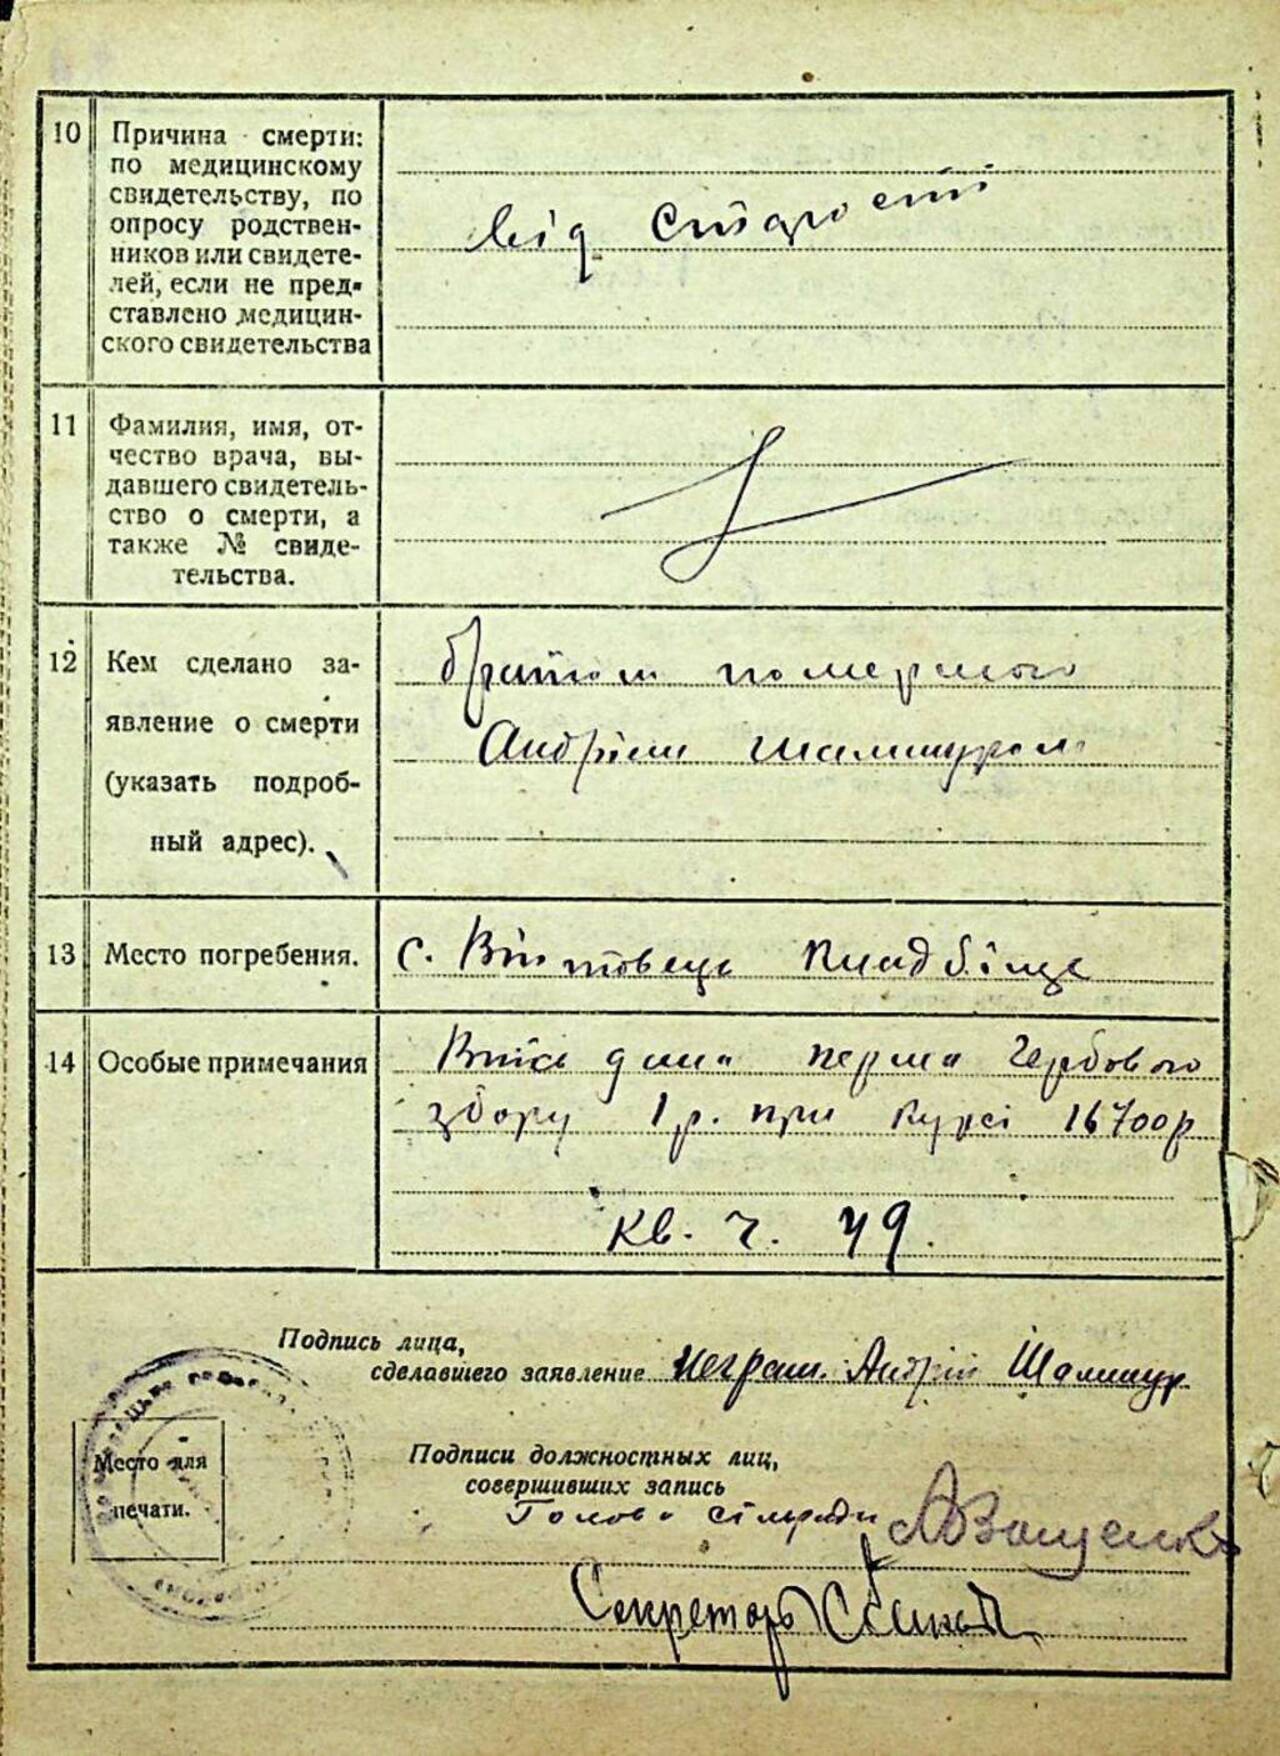 10 Причина смерти:
по медицинскому
свидетельству, по
опросу родствен-
ников или свидете-
лей, если не пред-
ставлено медицин-
ского свидетельства
від старости
11 Фамилия, имя, от-
чество врача, вы-
давшего свидетель-
ство о смерти, а
также № свиде-
тельства.
12 Кем сделано за-
явление о смерти
(указать подроб-
ный адрес).
братом померлого
Андрієм Шаминуром
13 Место погребения.
с. Війтовець Кладбіще
14 Особые примечания
гербового
збору 1 р. при курсі 16700р
кв. ч. 49.
Подпись лица,
сделавшего заявление неграм. Андрій
Место для
печати.
Подписи должностных лиц,
совершивших запись
Голова сільради
Секреторь